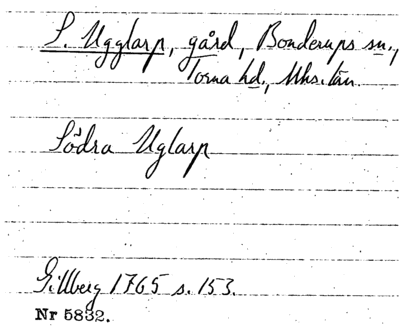 S. Ugglarp, gård, Bonderups sn.,
Torna hd., Mhs. län.
Södra Uglarp
Gillberg 1765 s. 153.
Nr 5832.